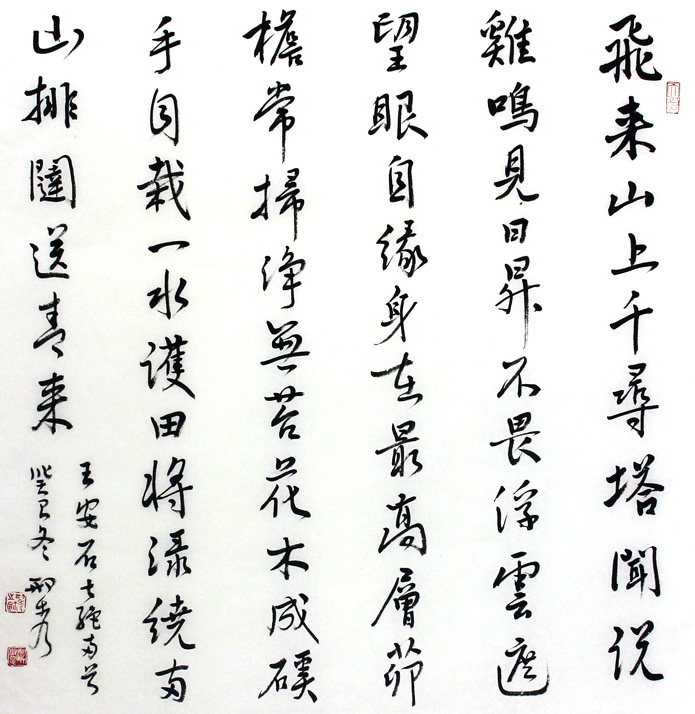 飛来山上千尋塔聞说
雞鳴見日昇不畏浮雲遮
望眼自缘身在最高層茆
檐常掃净無苔花木成
手自栽一水護田将渌繞两
山排闥送青来
王安石七绝两首
癸巳冬